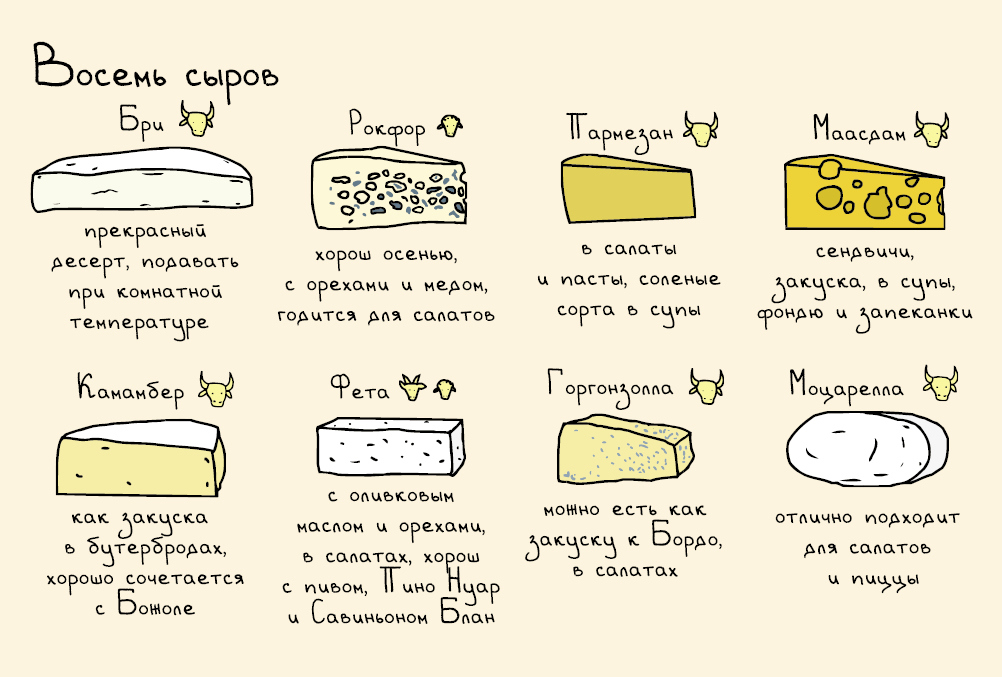 Восемь сыров
Бри
прекрасный
десерт, подавать
при комнатной
температуре
Рокфор
хорош осенью,
с орехами и медом,
годится для салатов
Пармезан
в салаты
и пасты, соленые
сорта в супы
Маасдам
сендвичи,
закуска, в супы,
фондю и запеканки
Камамбер
как закуска
в бутербродах,
хорошо сочетается
с Божоле
Фета
с оливковым
маслом и орехами,
в салатах, хорош
с пивом, Пино Нуар
и Савиньоном Блан
Горгонзолла
можно есть как
закуску к Бордо,
в салатах
Моцарелла
отлично подходит
для салатов
и пиццы